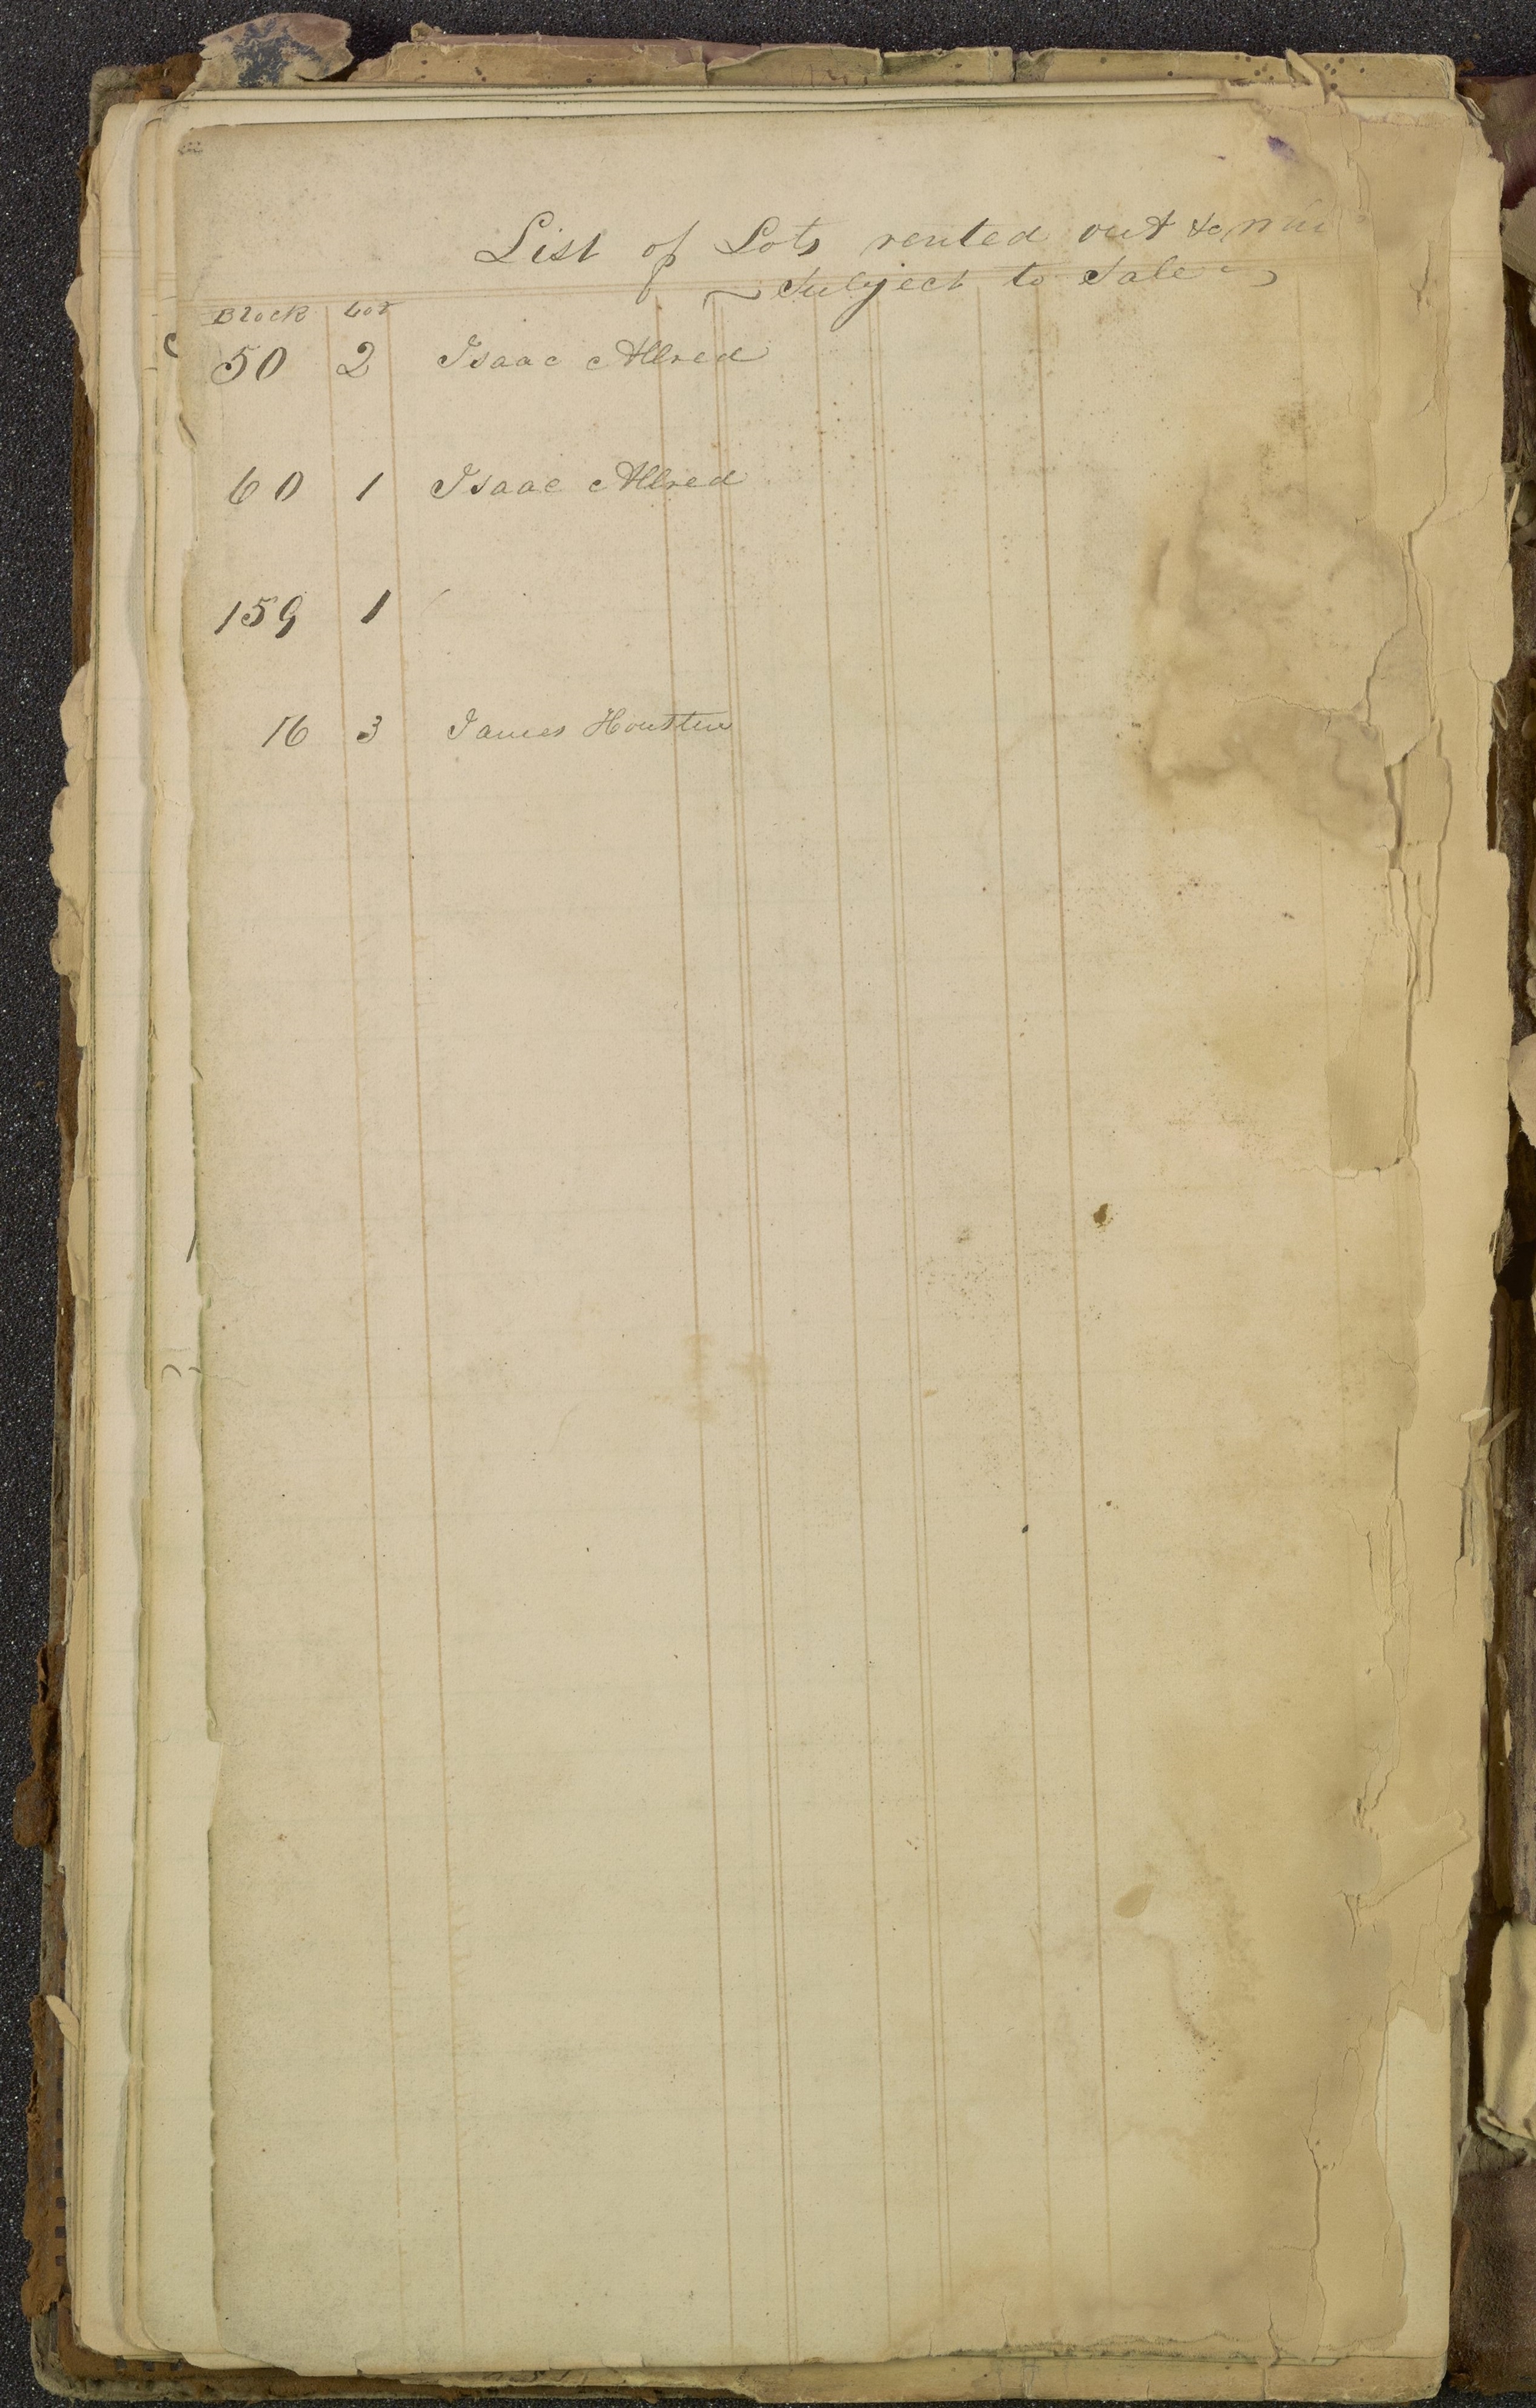 List of Lots rented out to
Subject to Sale
Block Lot
50 2 Isaac Allred
60 1 Isaac Allred
159 1
16 3 James Houston